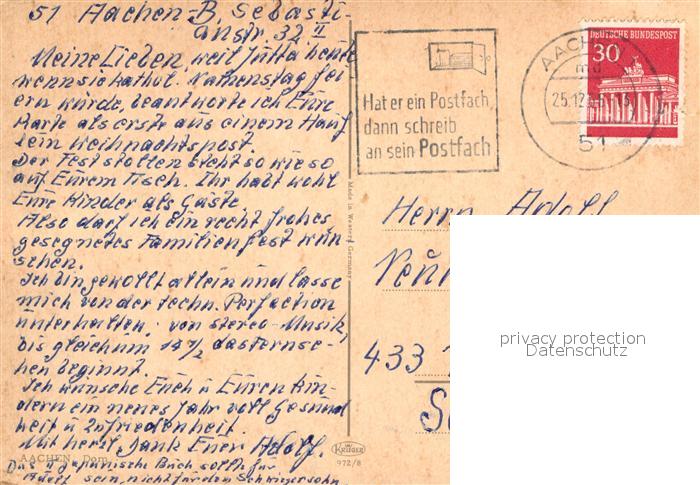 51 Aachen-B, Sebasti-
anstr. 32 II
Meine Lieben, weil Jutta heute
wenn sie kathol. Namenstag fei
ern würde, beantworte ich Eure
Karte als erste aus einem Hauf
lein Weihnachtspost.
Der Feststollen steht so wie so
auf Eurem Tisch. Ihr habt wohl
Eure Kinder als Gäste.
Also darf ich ein recht frohes,
gesegnetes Familienfest wün
schen.
Ich bin gewollt allein und lasse
mich von der techn. Perfection
unterhalten: von Stereo-Musik,
bis gleich um 14 1/2 das Fernse-
hen beginnt.
Ich wünsche Euch u Euren Kin-
dern ein neues Jahr voll Gesund
heit u Zufriedenheit.
Mit herzl. Dank Euer Adolf.
AACHEN, Dom
Das japanische Buch sollte für
Adolf sein, nicht für den Schwiegersohn.
Made in Western Germany
KRÜGER
972/8
Hat er ein Postfach,
dann schreib
an sein Postfach
AACHEN
25.12.
51
DEUTSCHE BUNDESPOST
30
Herrn Adolf
433
privacy protection
Datenschutz